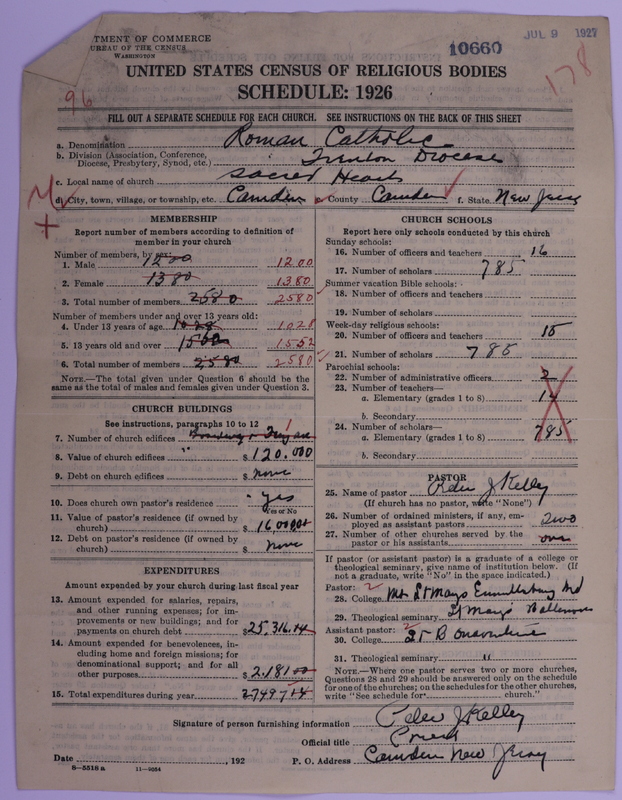 TMENT OF COMMERCE
UREAU OF THE CENSUS
WASHINGTON
10660
JUL 9 1927
178
96
UNITED STATES CENSUS OF RELIGIOUS BODIES
SCHEDULE: 1926
FILL OUT A SEPARATE SCHEDULE FOR EACH CHURCH. SEE INSTRUCTIONS ON THE BACK OF THIS SHEET
a. Denomination Roman Catholic
b. Division (Association, Conference, Diocese, Presbytery, Synod, etc.) Trenton Diocese
c. Local name of church Sacred Heart
d. City, town, village, or township, etc. Camden e. County Camden f. State New Jersey
MEMBERSHIP
Report number of members according to definition of
member in your church
Number of members, by sex:
1. Male 1200 1200
2. Female 1380 1380
3. Total number of members 2580 2580
Number of members under and over 13 years old:
4. Under 13 years of age 1028 1028
5. 13 years old and over 1552
6. Total number of members 2580 2580
NOTE.—The total given under Question 6 should be the
same as the total of males and females given under Question 3.
CHURCH BUILDINGS
See instructions, paragraphs 10 to 12
7. Number of church edifices Broadway & Ferry ave 1
8. Value of church edifices " $ 120.000
9. Debt on church edifices $ None
10. Does church own pastor's residence yes
Yes or No
11. Value of pastor's residence (if owned by
church) $ 16,000
12. Debt on pastor's residence (if owned by
church) $ None
EXPENDITURES
Amount expended by your church during last fiscal year
13. Amount expended for salaries, repairs,
and other running expenses; for im-
provements or new buildings; and for
payments on church debt $ 25,316.14
14. Amount expended for benevolences, in-
cluding home and foreign missions; for
denominational support; and for all
other purposes $ 2.181 00
15. Total expenditures during year 27497 14
CHURCH SCHOOLS
Report here only schools conducted by this church
Sunday schools:
16. Number of officers and teachers 16
17. Number of scholars 785
Summer vacation Bible schools:
18. Number of officers and teachers
19. Number of scholars
Week-day religious schools:
20. Number of officers and teachers 15
21. Number of scholars 785
Parochial schools:
22. Number of administrative officers 2
23. Number of teachers—
a. Elementary (grades 1 to 8) 14
b. Secondary
24. Number of scholars—
a. Elementary (grades 1 to 8) 785
b. Secondary
PASTOR
25. Name of pastor Peter J Kelly
(If church has no pastor, write "None")
26. Number of ordained ministers, if any, em-
ployed as assistant pastors two
27. Number of other churches served by the
pastor or his assistants one
If pastor (or assistant pastor) is a graduate of a college or
theological seminary, give name of institution below. (If
not a graduate, write "No" in the space indicated.)
Pastor: 2
28. College Mt St Marys Emmittsburg Md
29. Theological seminary St Marys Baltimore
Assistant pastor: 2
30. College St Bonaventure
31. Theological seminary "
NOTE.—Where one pastor serves two or more churches,
Questions 28 and 29 should be answered only on the schedule
for one of the churches; on the schedules for the other churches,
write "See schedule for church."
Signature of person furnishing information Peter J Kelly
Official title Priest
Date , 192 P. O. Address Camden New Jersey
8—5518 a 11—9054